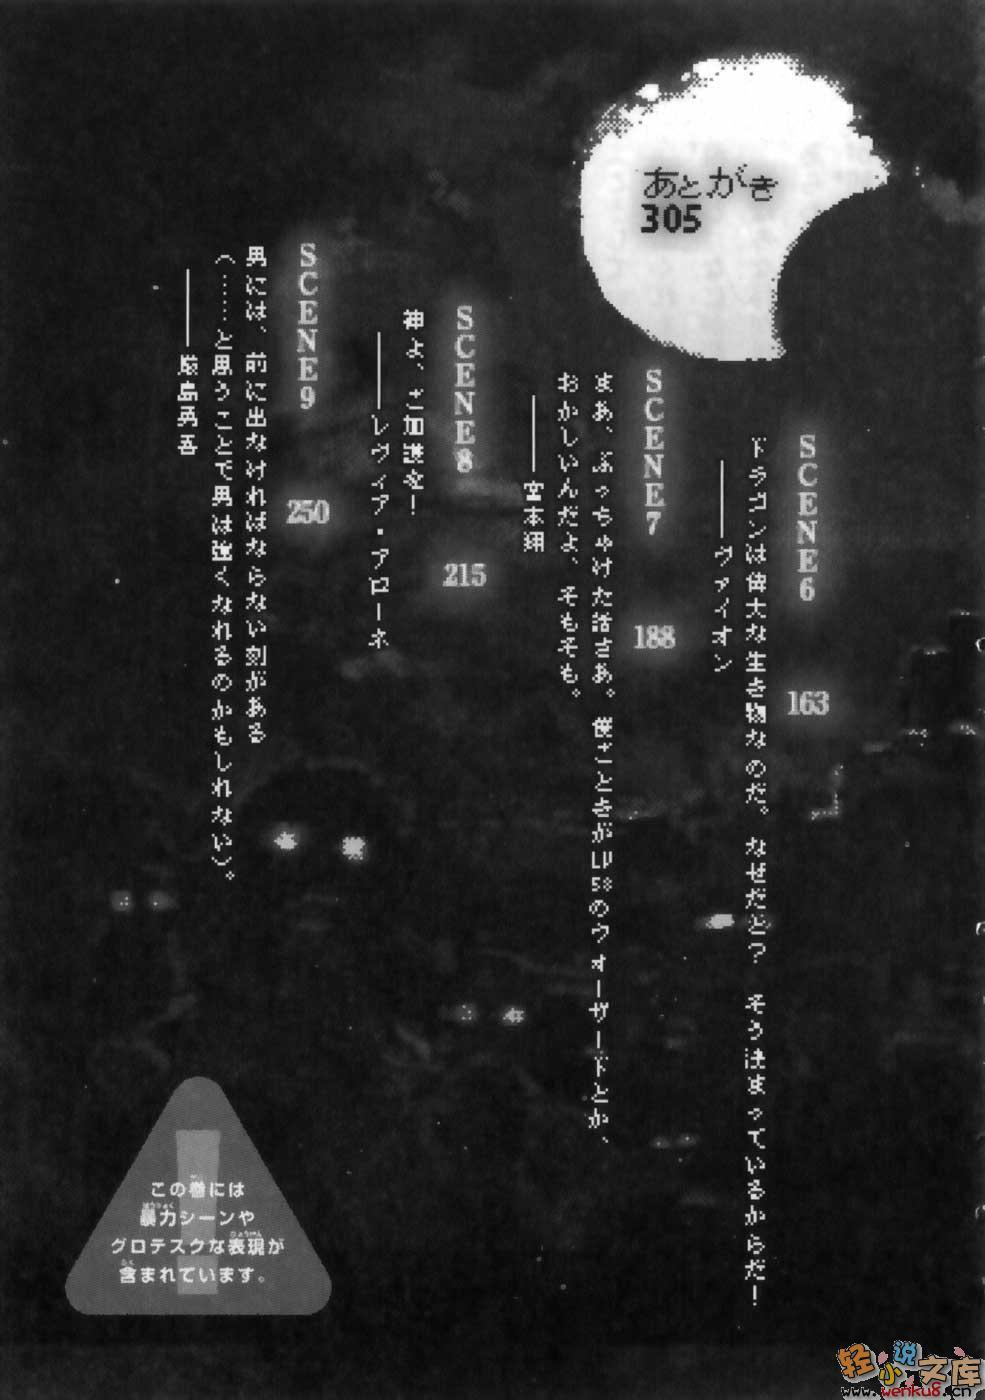 SCENE6
163
ドラゴンは偉大な生き物なのだ。なぜだと？　そう決まっているからだ！
――ヴァイオン
SCENE7
188
まあ、ぶっちゃけた話さあ。僕ごときがLV58のウォーザードとか、
おかしいんだよ、そもそも。
――宮本翔
SCENE8
215
神よ、ご加護を！
――レヴィア・アローネ
SCENE9
250
男には、前に出なければならない刻がある
（……と思うことで男は強くなれるのかもしれない）。
――厳島勇吾
あとがき
305
この巻には
暴力シーンや
グロテスクな表現が
含まれています。
轻小说文库
www.wenku8.cn